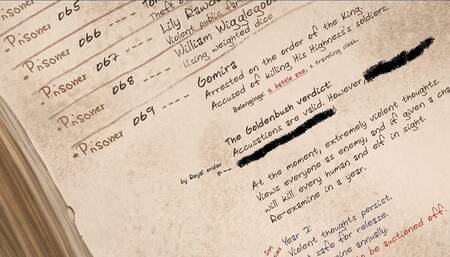 Prisoner 065
Theft o
Prisoner 066 ---- Tor
Violent public fa
Lily Rawd
Prisoner 067 ----
William Wigglegoo
Using weighted dice
Prisoner 068 ----
Prisoner 069 ---- Gomira
Arrested on the order of the King.
Accused of killing His Highness's soldiers.
Belongings: a battle axe, a traveling cloak.
The Goldenbush verdict:
Accusations are valid. However
by Royal order
At the moment, extremely violent thoughts.
Views everyone as enemy, and if given a cha
will kill every human and elf in sight.
Re-examine in a year.
Year 2:
Violent thoughts persist.
safe for release.
annually.
be auctioned off.